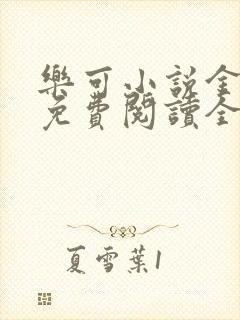 樂可小說全
免費閱讀全
夏雪葉1